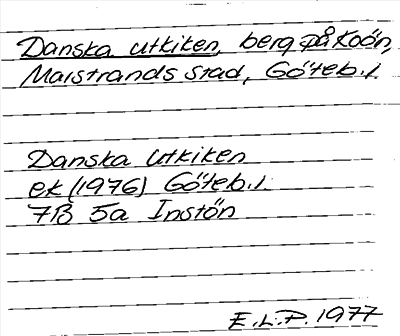 Danska utkiken, berg på Koön,
Marstrands stad, Göteb.l.
Danska utkiken
ek (1976) Göteb.l.
7B 5a Instön
E.L.P. 1977